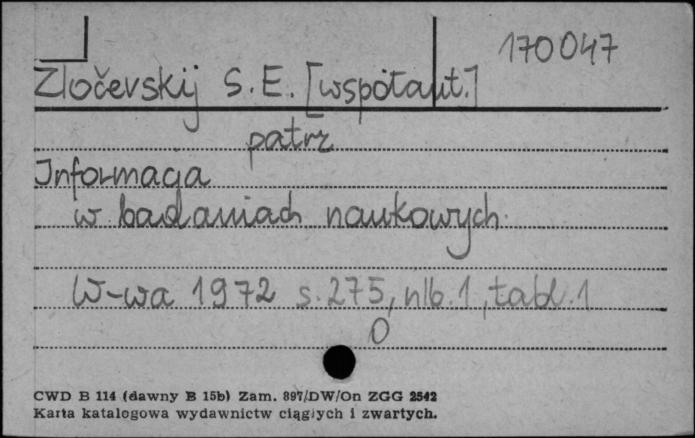 170047
Zločevskij S.E. [współaut.]
patrz
Informacja
w badaniach naukowych
W-wa 1972 s. 275, nlb. 1, tabl. 1
O
CWD B 114 (dawny B 15b) Zam. 897/DW/On ZGG 2542
Karta katalogowa wydawnictw ciągłych i zwartych.